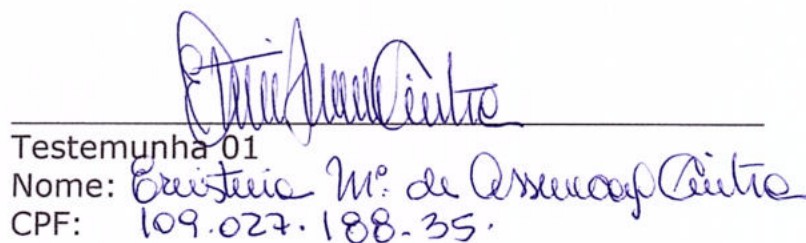 Testemunha 01
Nome: Mª de Assunção Cintra
CPF: 109.027.188-35.